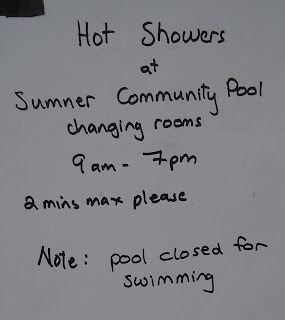 Hot Showers
at
Sumner Community Pool
changing rooms
9am - 7pm
2 mins max please
Note: pool closed for
swimming